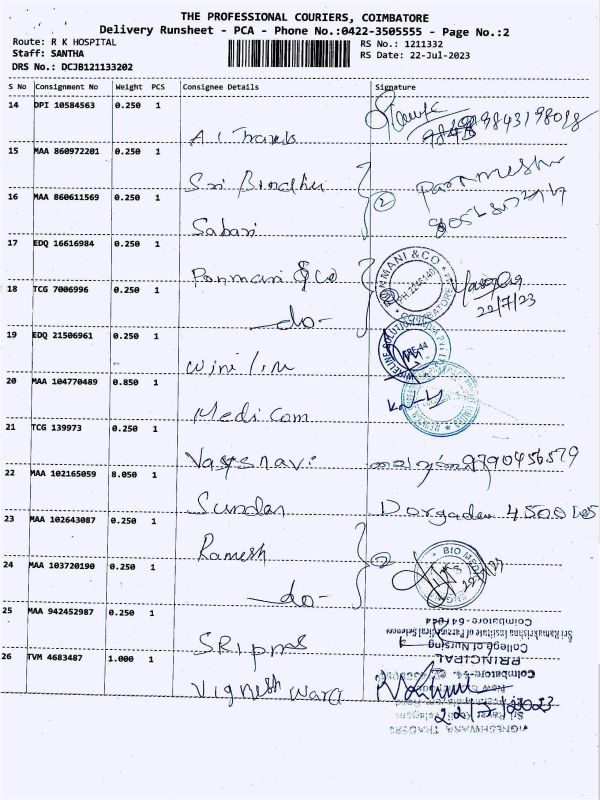 THE PROFESSIONAL COURIERS, COIMBATORE
Delivery Runsheet - PCA - Phone No.:0422-3505555 - Page No.:2
Route: R K HOSPITAL
Staff: SANTHA
DRS No.: DCJB121133202
RS No.: 1211332
RS Date: 22-Jul-2023
S No Consignment No Weight PCS Consignee Details Signature
14 DPI 10584563 0.250 1
9843198018
15 MAA 860972201 0.250 1
Sri Bindhu
16 MAA 860611569 0.250 1
Sabari
2
17 EDQ 16616984 0.250 1
Ponmani & Co
PONMANI & CO
18 TCG 7006996 0.250 1
-do-
22/7/23
19 EDQ 21506961 0.250 1
20 MAA 104770489 0.850 1
Medicom
21 TCG 139973 0.250 1
Vaishnavi 9790456579
22 MAA 102165059 8.050 1
Sundar
23 MAA 102643087 0.250 1
Ramesh
2
BIO MED
24 MAA 103720190 0.250 1
-do-
25 MAA 942452987 0.250 1
SRI pms
Coimbatore-641044
Sri Ramakrishna Institute of Paramedical Sciences
College of Nursing
PRINCIPAL
26 TVM 4683487 1.000 1
Vigneshwara
22/7/2023
VIGNESHWARA TRADERS